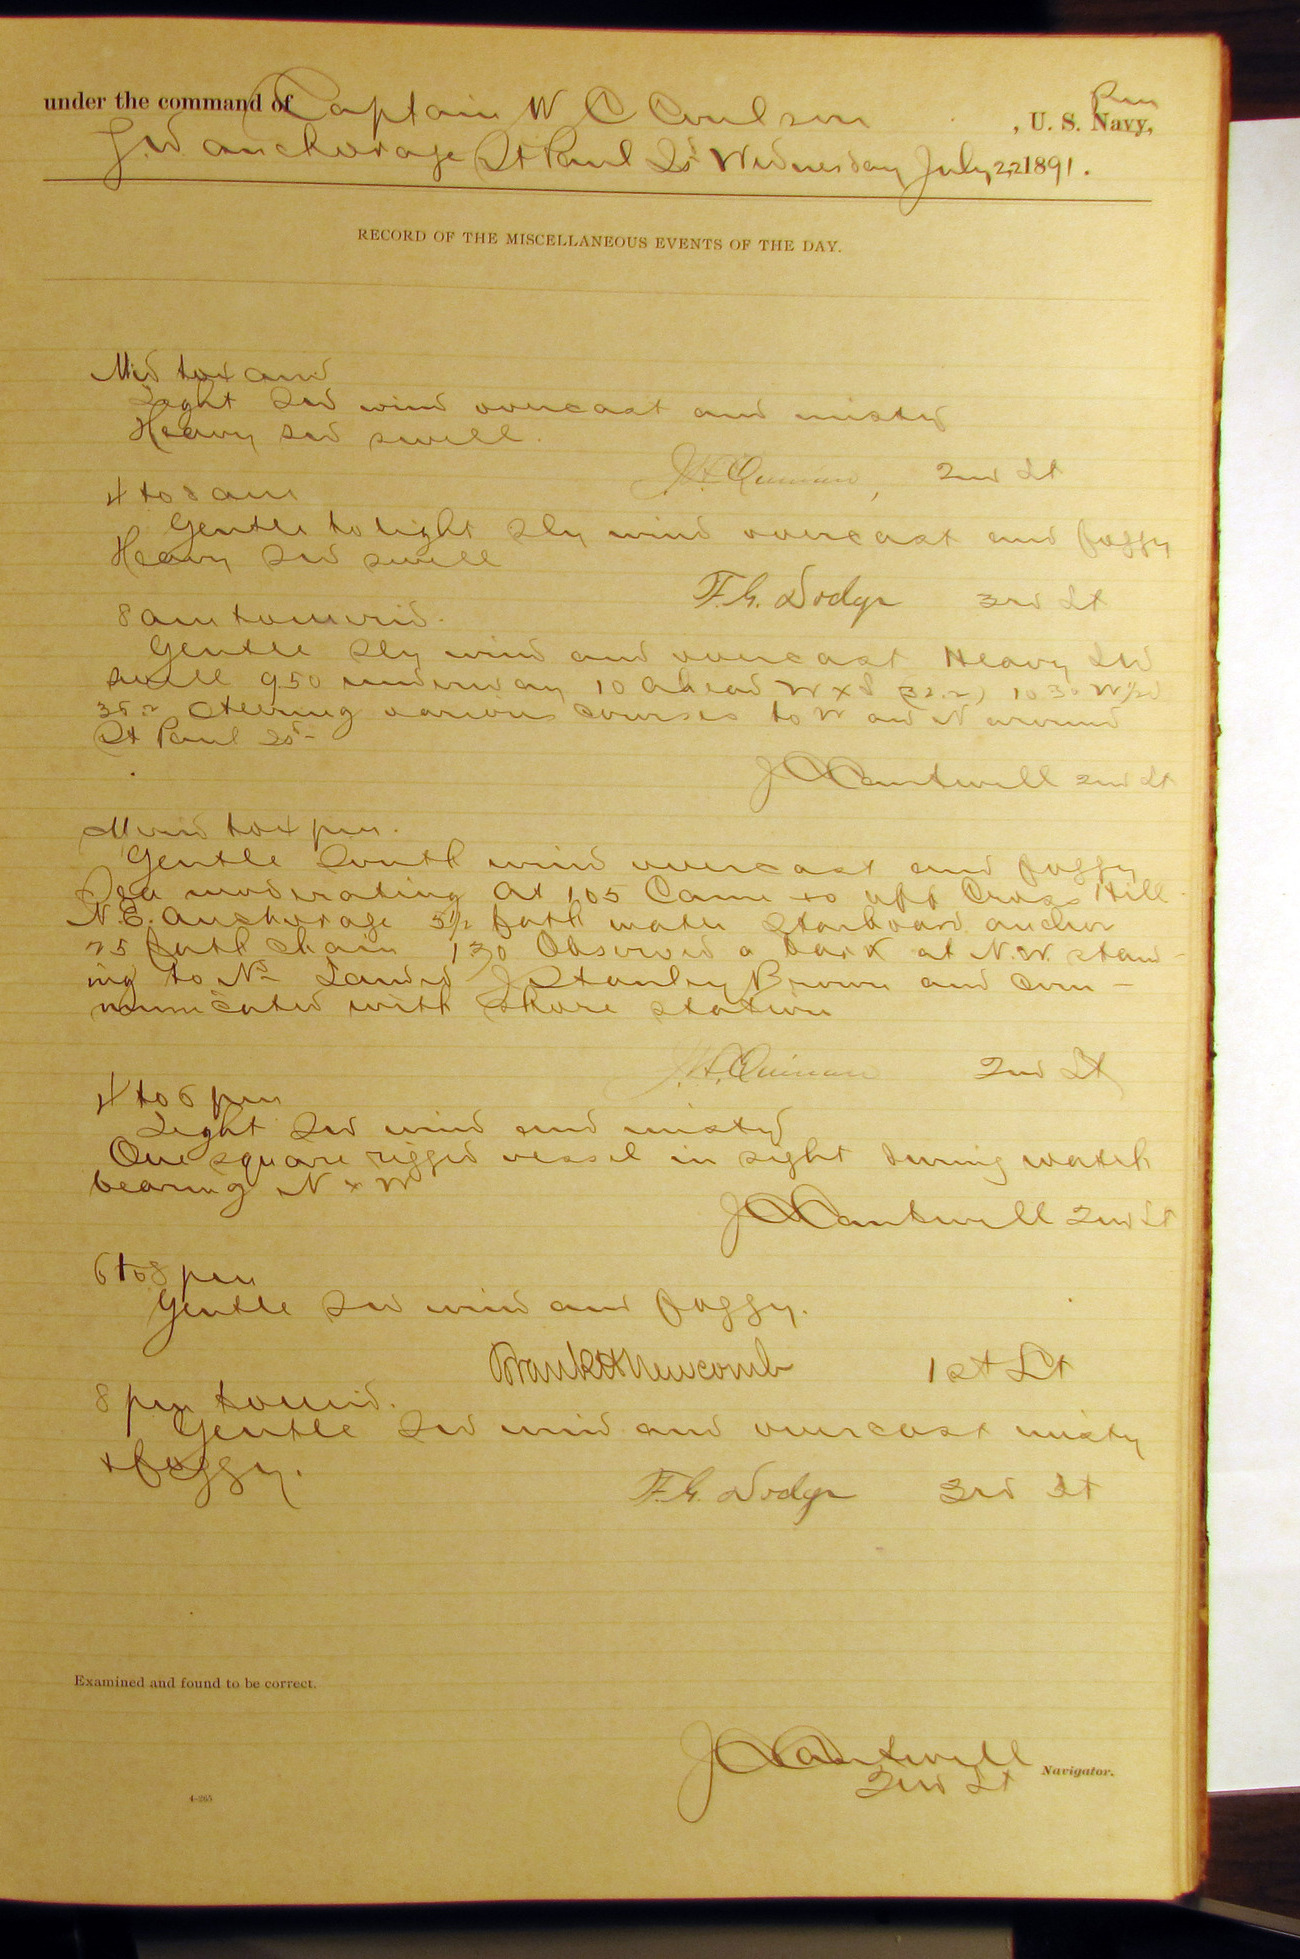 under the command of Captain W C Coulson , U. S. Rev Navy,
S.W. anchorage St Paul Isd Wednesday July, 22 1891.
RECORD OF THE MISCELLANEOUS EVENTS OF THE DAY.
Mid to 4 am
Light Sd wind overcast and misty
Heavy Sd swell.
J.H. Quinan, 2nd Lt
4 to 8 am
Gentle to light Sly wind overcast and foggy
Heavy Sd swell
F.G. Dodge 3rd Lt
8 am to merid.
Gentle Sly wind and overcast Heavy Sd
swell 9.50 underway 10 ahead W x S (32.2) 10 30
Steering various courses to W and N around
St Paul Isd
J C Cantwell 2nd Lt
Merid to 4 pm.
Gentle South wind overcast and foggy
Sea moderating At 1,05 Came to off Cross Hill
N.E. anchorage 5 1/2 fath water Starboard anchor
25 fath chain 1 30 Observed a bark at N.W. stand-
ing to Nd Landed J Stanley Brown and com-
municated with shore station
J.H. Quinan 2nd Lt
4 to 6 pm
Light Sd wind and misty
One square rigged vessel in sight during watch
bearing N x W
J C Cantwell 2nd Lt
6 to 8 pm
Gentle Sd wind and foggy.
Frank H Newcomb 1st Lt
8 pm to mid.
Gentle Sd wind and overcast misty
+ foggy.
F.G. Dodge 3rd Lt
Examined and found to be correct.
J C Cantwell
2nd Lt Navigator.
4-265